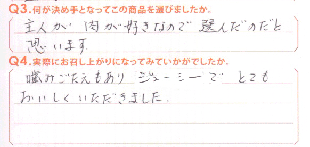 Q3.何が決め手となってこの商品を選びましたか。
主人が肉が好きなので選んだのだと
思います。
Q4.実際にお召し上がりになってみていかがでしたか。
噛みごたえもありジューシーでとても
おいしくいただきました。